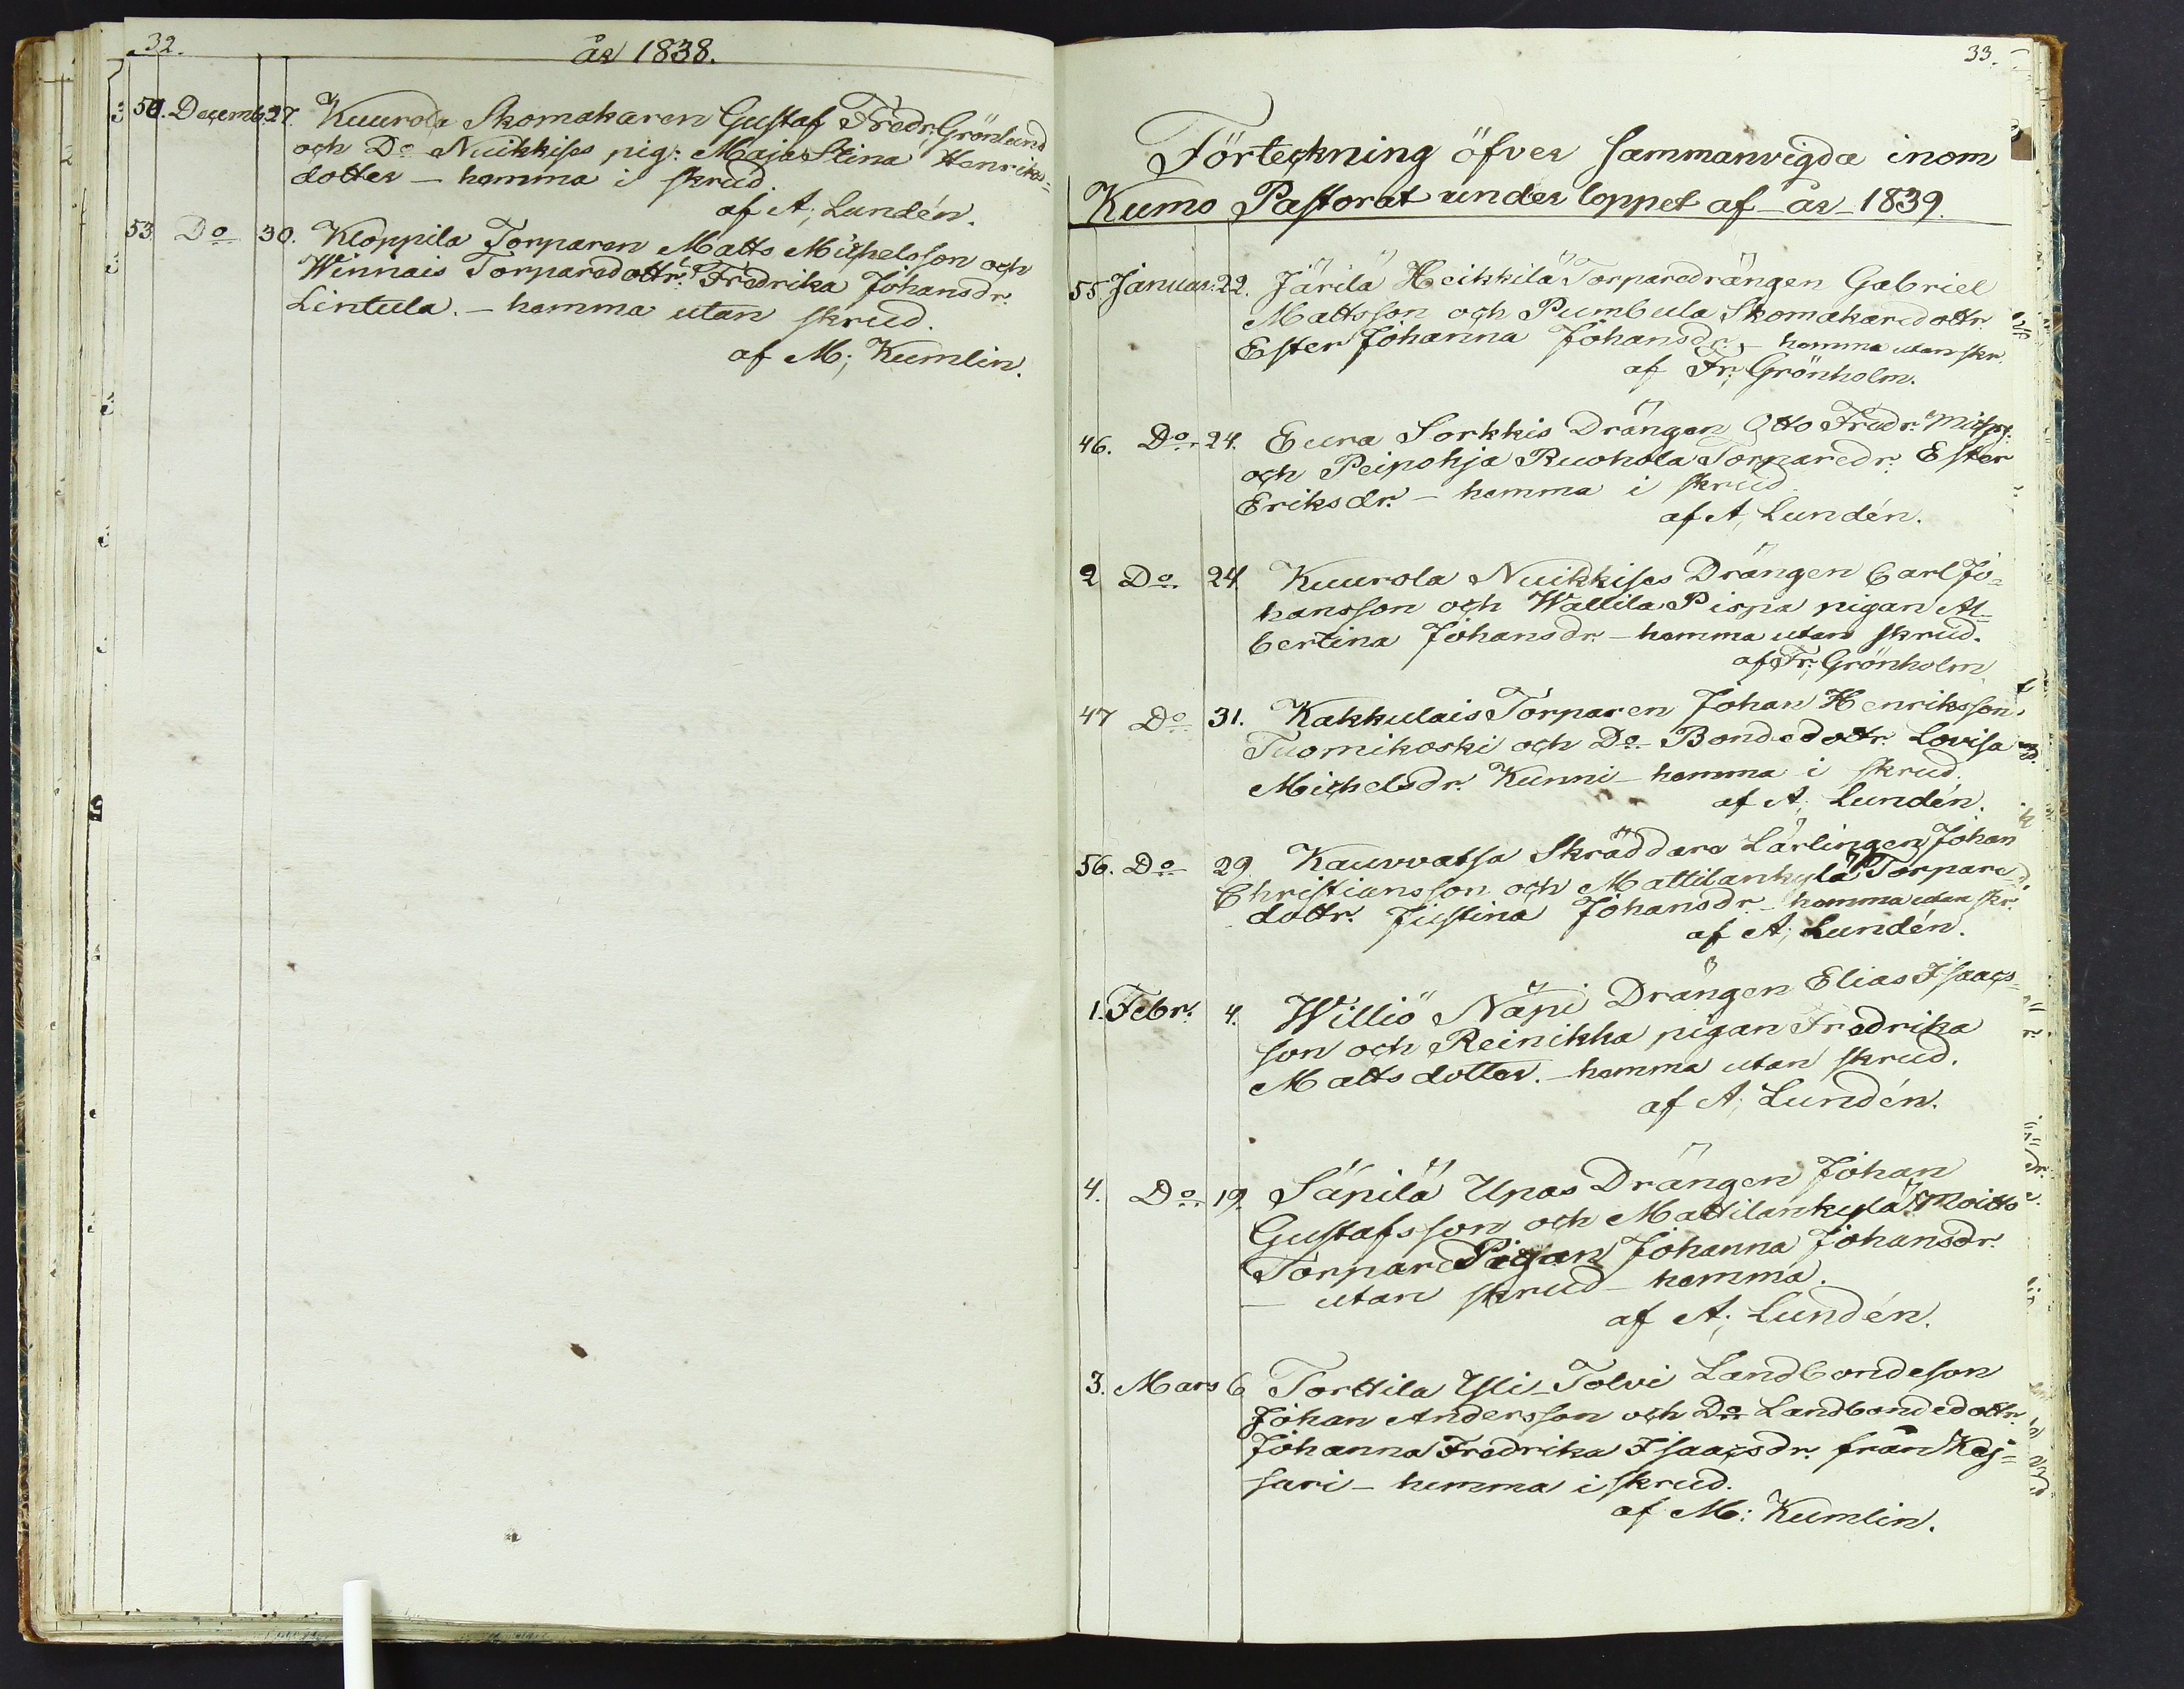 32.
år 1838.
50. Decemb. 27. Kuurola Skomakaren Gustaf Fredr. Grönlund
och Do Nuikkises pig: Maja Stina Henriks=
dotter — hemma i skrud.
af A; Lundén.
53 Do 30. Klöppila Torparen Matts Michelsson och
Winnais Torparedottr: Fredrika Johansdr.
Lintula. — hemma utan skrud.
af M; Kumlin.
33.
Förteckning öfver sammanvigda inom
Kumo Pastorat under loppet af år 1839.
55 Januar: 22. Järilä Heikkilä Torparedrängen Gabriel
Mattsson och Pumbula Skomakaredottr.
Ester Johanna Johansdr. — hemma utan skr.
af Fr; Grönholm.
46. Do 24. Eura Sorkkis Drängen Otto Fredr:
och Peipohja Ruohola Torparedr. Ester
Eriksdr. — hemma i skrud
af A; Lundén.
2 Do. 24. Kuurola Nuikkises Drängen Carl Jo=
hansson och Wallila Pispa pigan Al=
bertina Johansdr. — hemma utan skrud.
af Fr; Grönholm.
47 Do 31. Kakkulais Torparen Johan Henriksson
Tuomikoski och Do Bondedottr. Lovisa
Michelsdr. Kunni — hemma i skrud.
af A; Lundén.
56. Do 29. Kauvvatsa Skräddare Lärlingen Johan
Christiansson och Mattilankylä Torpare=
dottr. Justina Johansdr. — hemma utan skr.
af A; Lundén.
1. Febr. 4. Williö Näpi Drängen Elias Isaacs=
son och Reinikka pigan Fredrika
Mattsdotter. — hemma utan skrud.
af A; Lundén.
4. Do. 19. Säpilä Upas Drängen Johan
Gustafsson och Mattilankylä Moitto
Torpare Pigan Johanna Johansdr.
— utan skrud — hemma.
af A; Lundén.
3. Mars 6 Torttila Yli-Tolvi Landbondeson
Johan Andersson och Do Landbondedottr.
Johanna Fredrika Isaacsdr. från Kej=
sari — hemma i skrud.
af M: Kumlin.